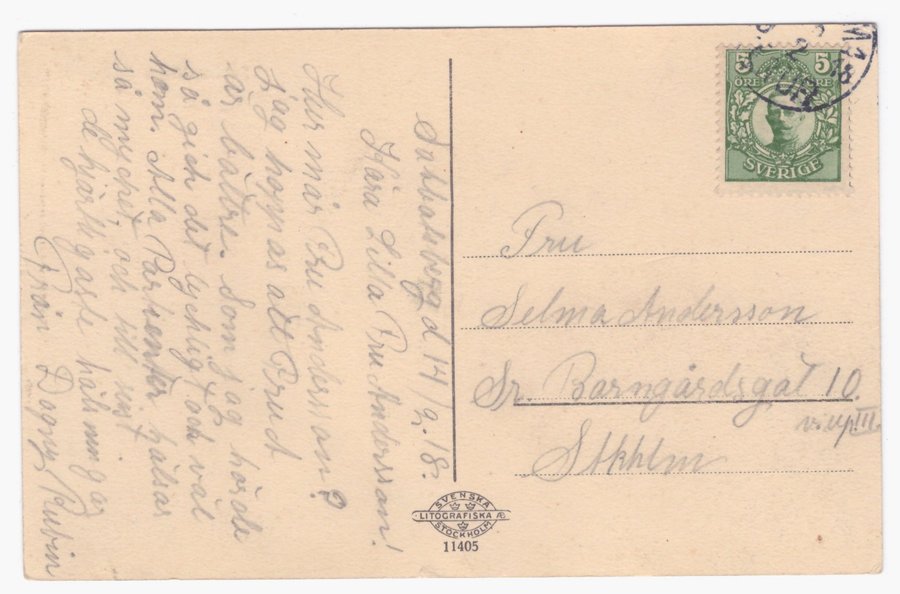 Sabbatsberg d 14/2. 18.
Kära Lilla Fru Andersson!
Hur mår Fru Andersson?
Jag hoppas att Brud
är bättre. Som jag hörde
så gick det lyckligt och väl
hem. Alla Patienter hälsar
så mycket och till sist
de hjärtligaste hälningar
Från Dony Rubin
5 5
ÖRE ÖRE
SVERIGE
2 18
Fru
Selma Andersson
Sr. Barngårdsgat 10.
Stkhlm
SVENSKA
LITOGRAFISKA AB
STOCKHOLM
11405